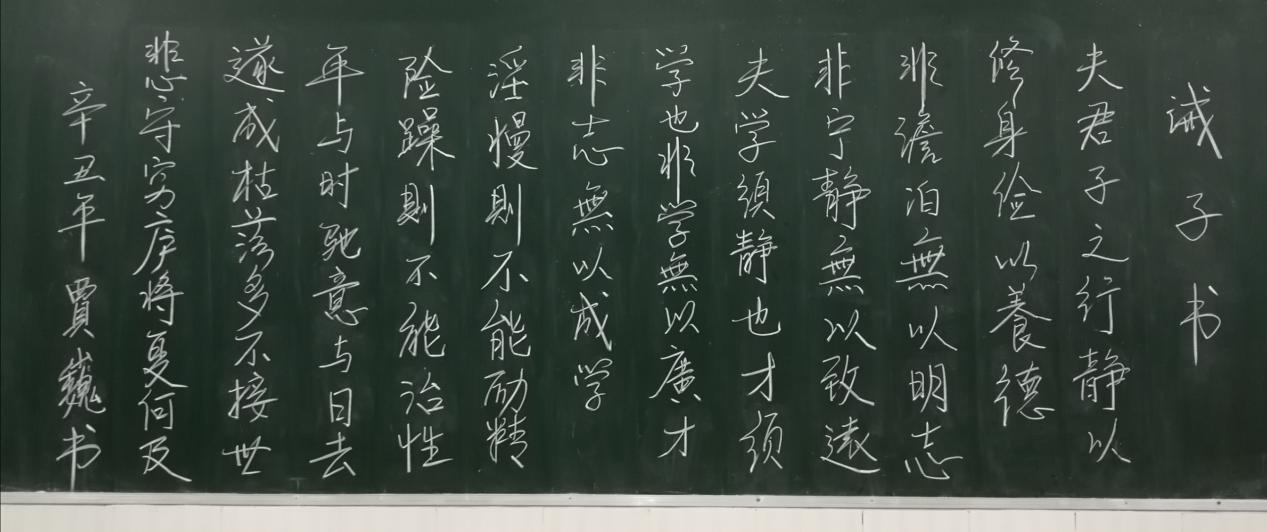 诫子书
夫君子之行静以
修身俭以養德
非澹泊無以明志
非宁静無以致遠
夫学须静也才须
学也非学無以廣才
非志無以成学
淫慢則不能励精
险躁則不能治性
年与时驰意与日去
遂成枯落多不接世
悲守穷庐将复何及
辛丑年賈巍书